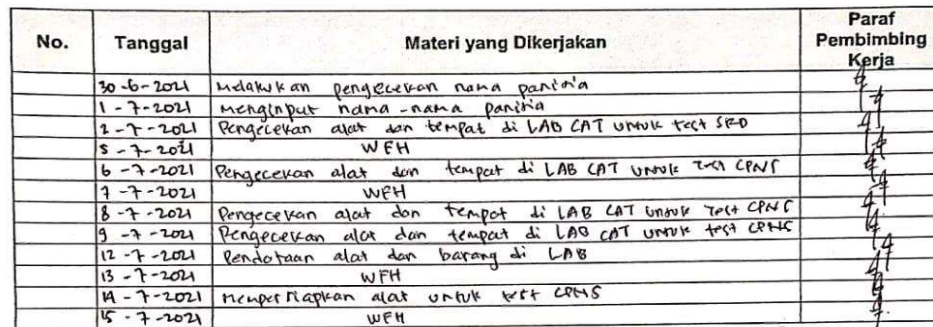 No. Tanggal Materi yang Dikerjakan Paraf Pembimbing Kerja
30-6-2021 Melakukan pengecekan nama panitia
1-7-2021 Menginput nama-nama panitia
2-7-2021 Pengecekan alat dan tempat di LAB CAT untuk test SKD
5-7-2021 WFH
6-7-2021 Pengecekan alat dan tempat di LAB CAT untuk Test CPNS
7-7-2021 WFH
8-7-2021 Pengecekan alat dan tempat di LAB CAT untuk Test CPNS
9-7-2021 Pengecekan alat dan tempat di LAB CAT untuk test CPNS
12-7-2021 Pendataan alat dan barang di LAB
13-7-2021 WFH
14-7-2021 Mempersiapkan alat untuk test CPNS
15-7-2021 WFH